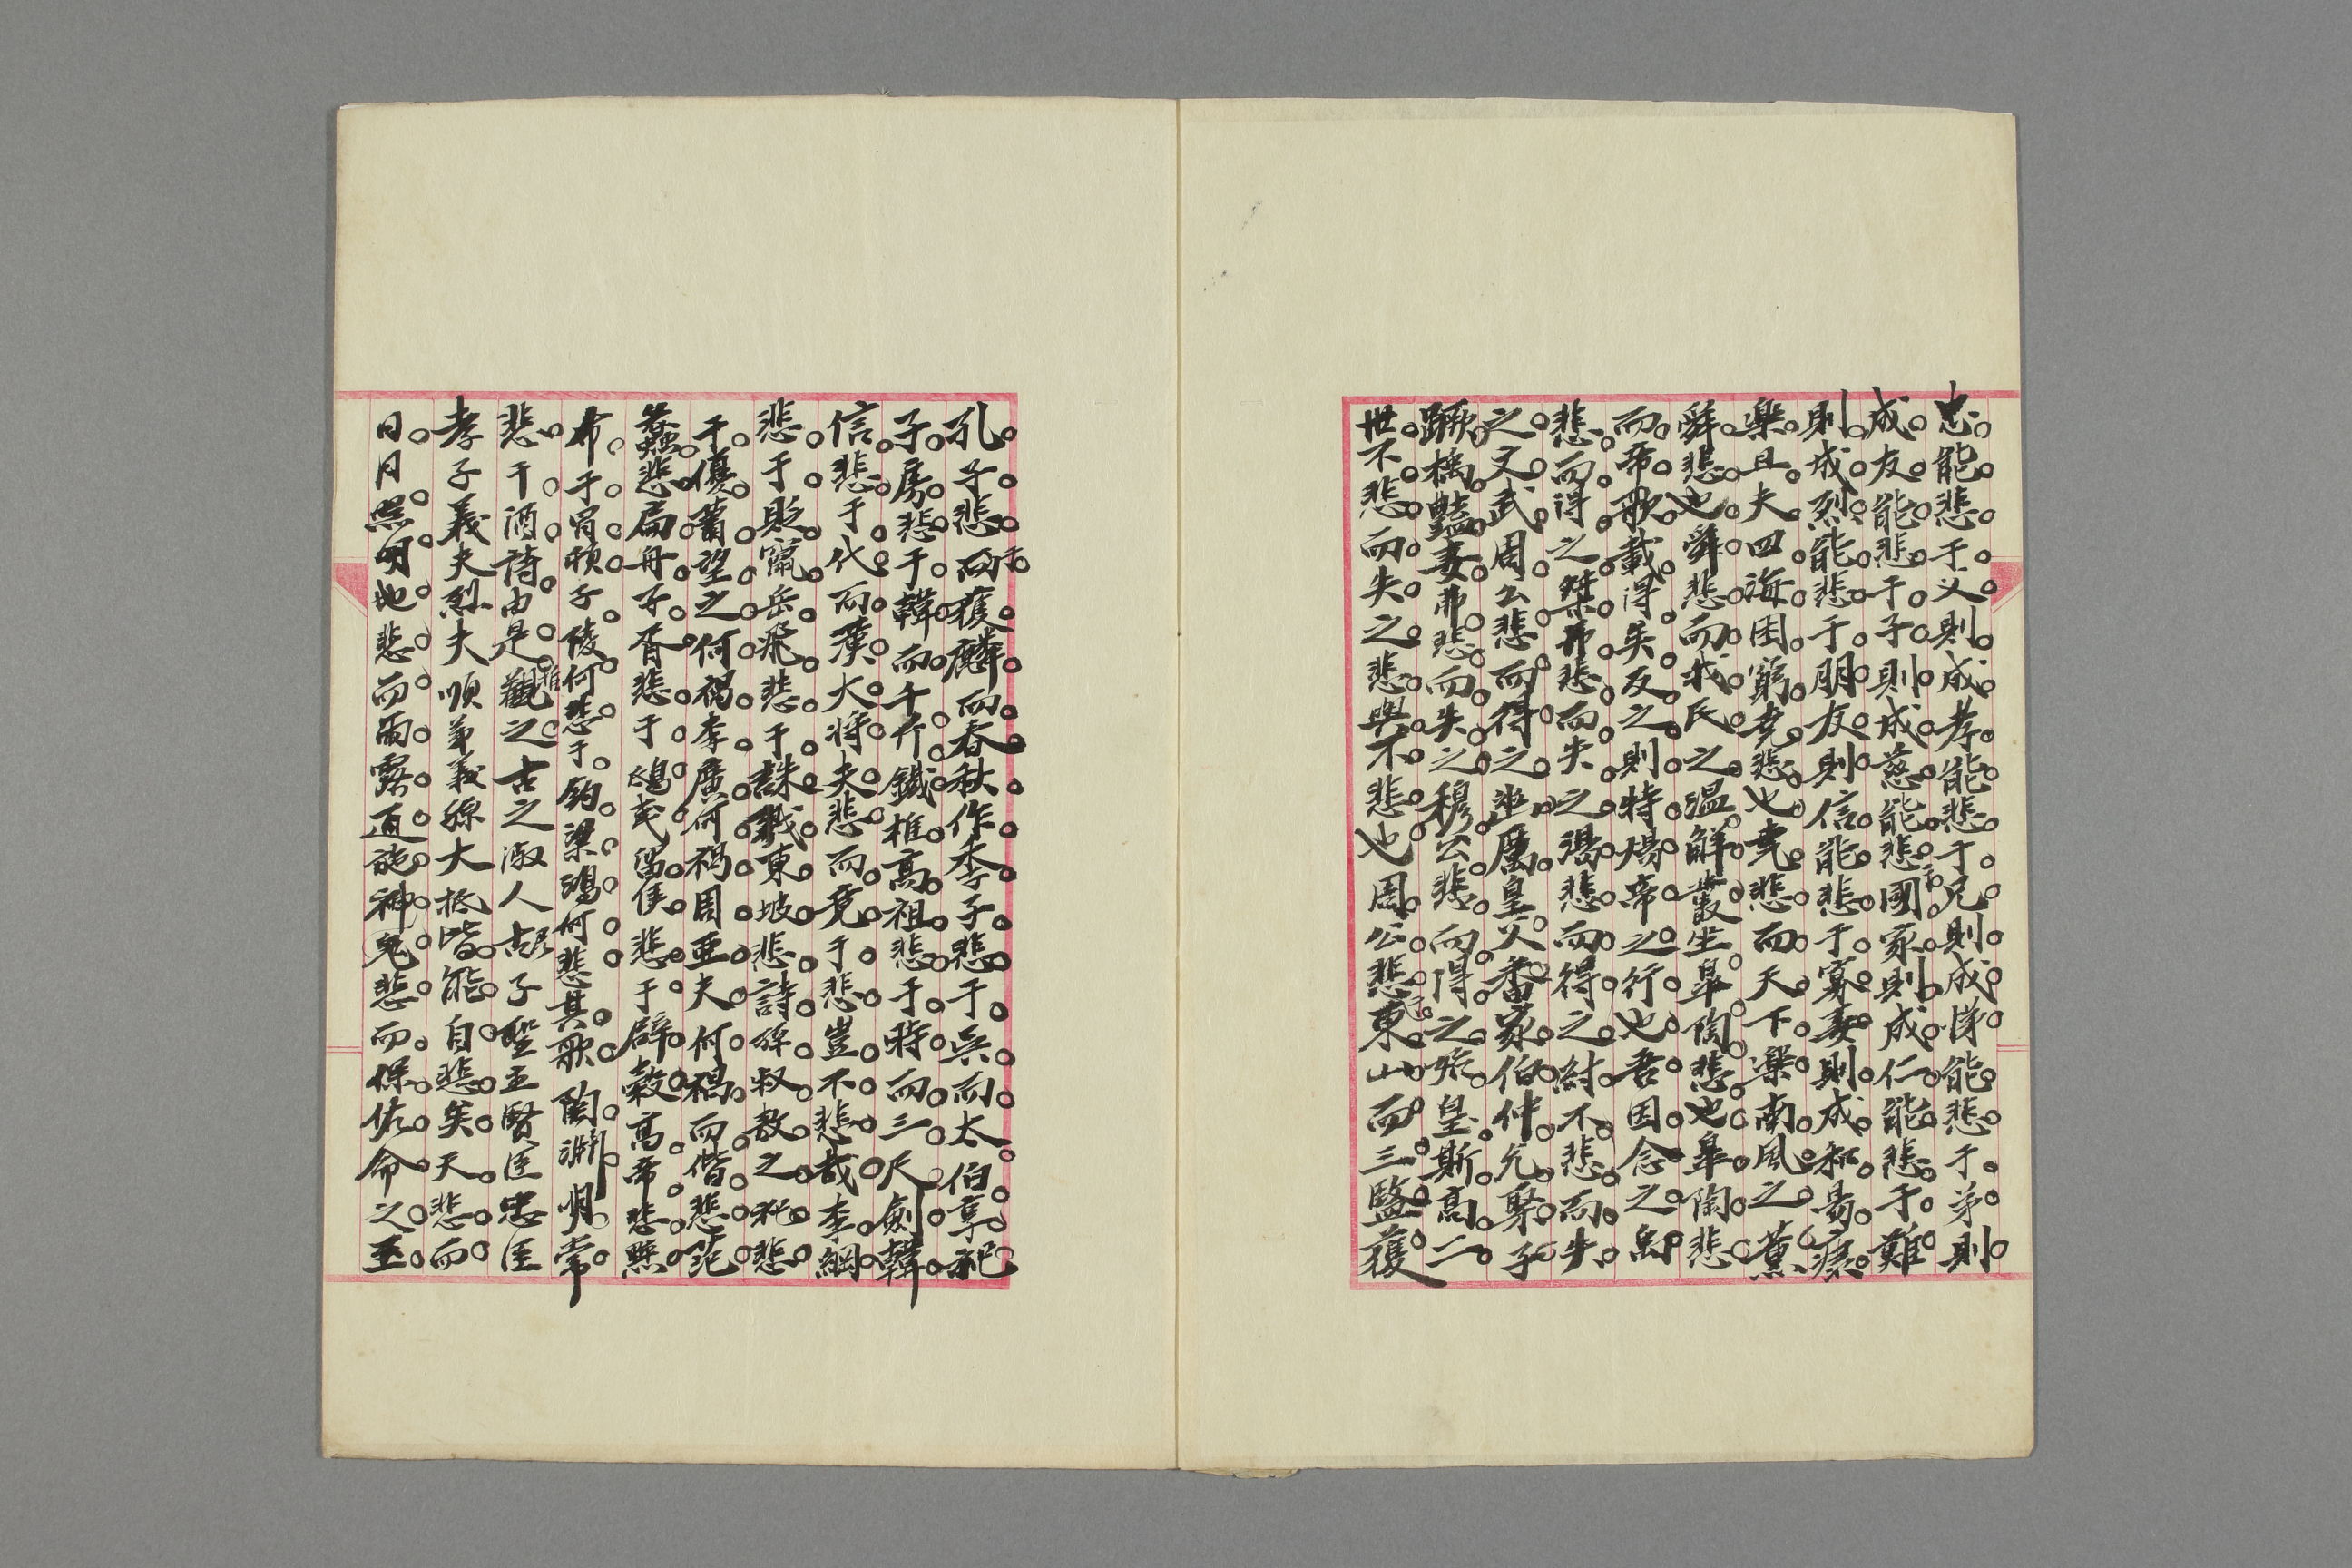 忠能悲于父則成孝能悲于兄則成悌能悲于弟則
成友能悲于子則成慈能悲于國家則成仁能悲于難
則成烈能悲于朋友則信能悲于寡妻則成和曷療
樂且夫四海困窮堯悲也堯悲而天下樂南風之薰
舜悲也舜悲而我民之溫解叢坐皐陶悲也皐陶悲
而帝歌載得矣反之則特煬帝之行也吾因念之禹
悲而得之桀弗悲而失之湯悲而得之紂不悲而失
之文武周公悲而得之幽厲皇父番家伯仲允聚子
蹶楀豔妻弗悲而失之穆公悲而得之斯高二
世不悲而失之悲與不悲也周公悲于東山而三監獲
孔子悲于西獲麟而春秋作季子悲于吳而太伯享祀
子房悲于韓而千斤鐵椎高祖悲于時而三尺劍韓
信悲于代而漢大將夫悲而竟于悲豈不悲哉李綱
悲于貶竄岳飛悲于誅戮東坡悲詩叔敖之祀悲
于優蕭望之何禍李廣何禍周亞夫何禍而偕悲范
蠡悲扁舟子胥悲于鴟夷留侯悲于辟穀高帝悲黥
布于子陵何悲于釣梁鴻何悲其歌陶淵明常
悲于酒詩由是推觀之古之淑人君子聖王賢臣忠臣
孝子義夫烈夫順弟義孫大抵皆能自悲矣天悲而
日月照明地悲而雨露道施神鬼悲而保佑命之至